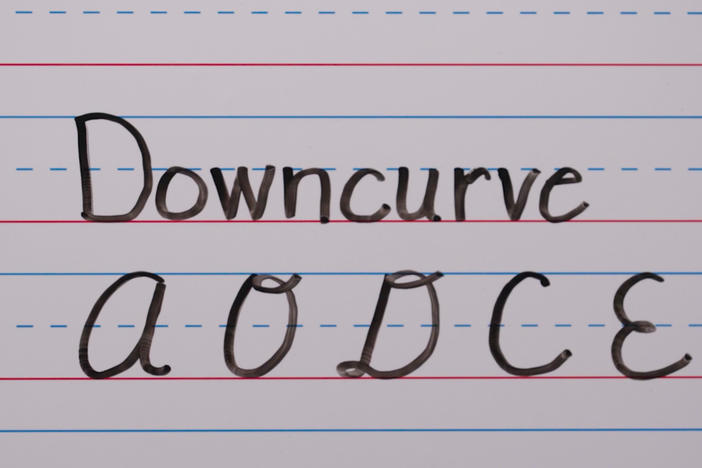 Downcurve
A O D C E